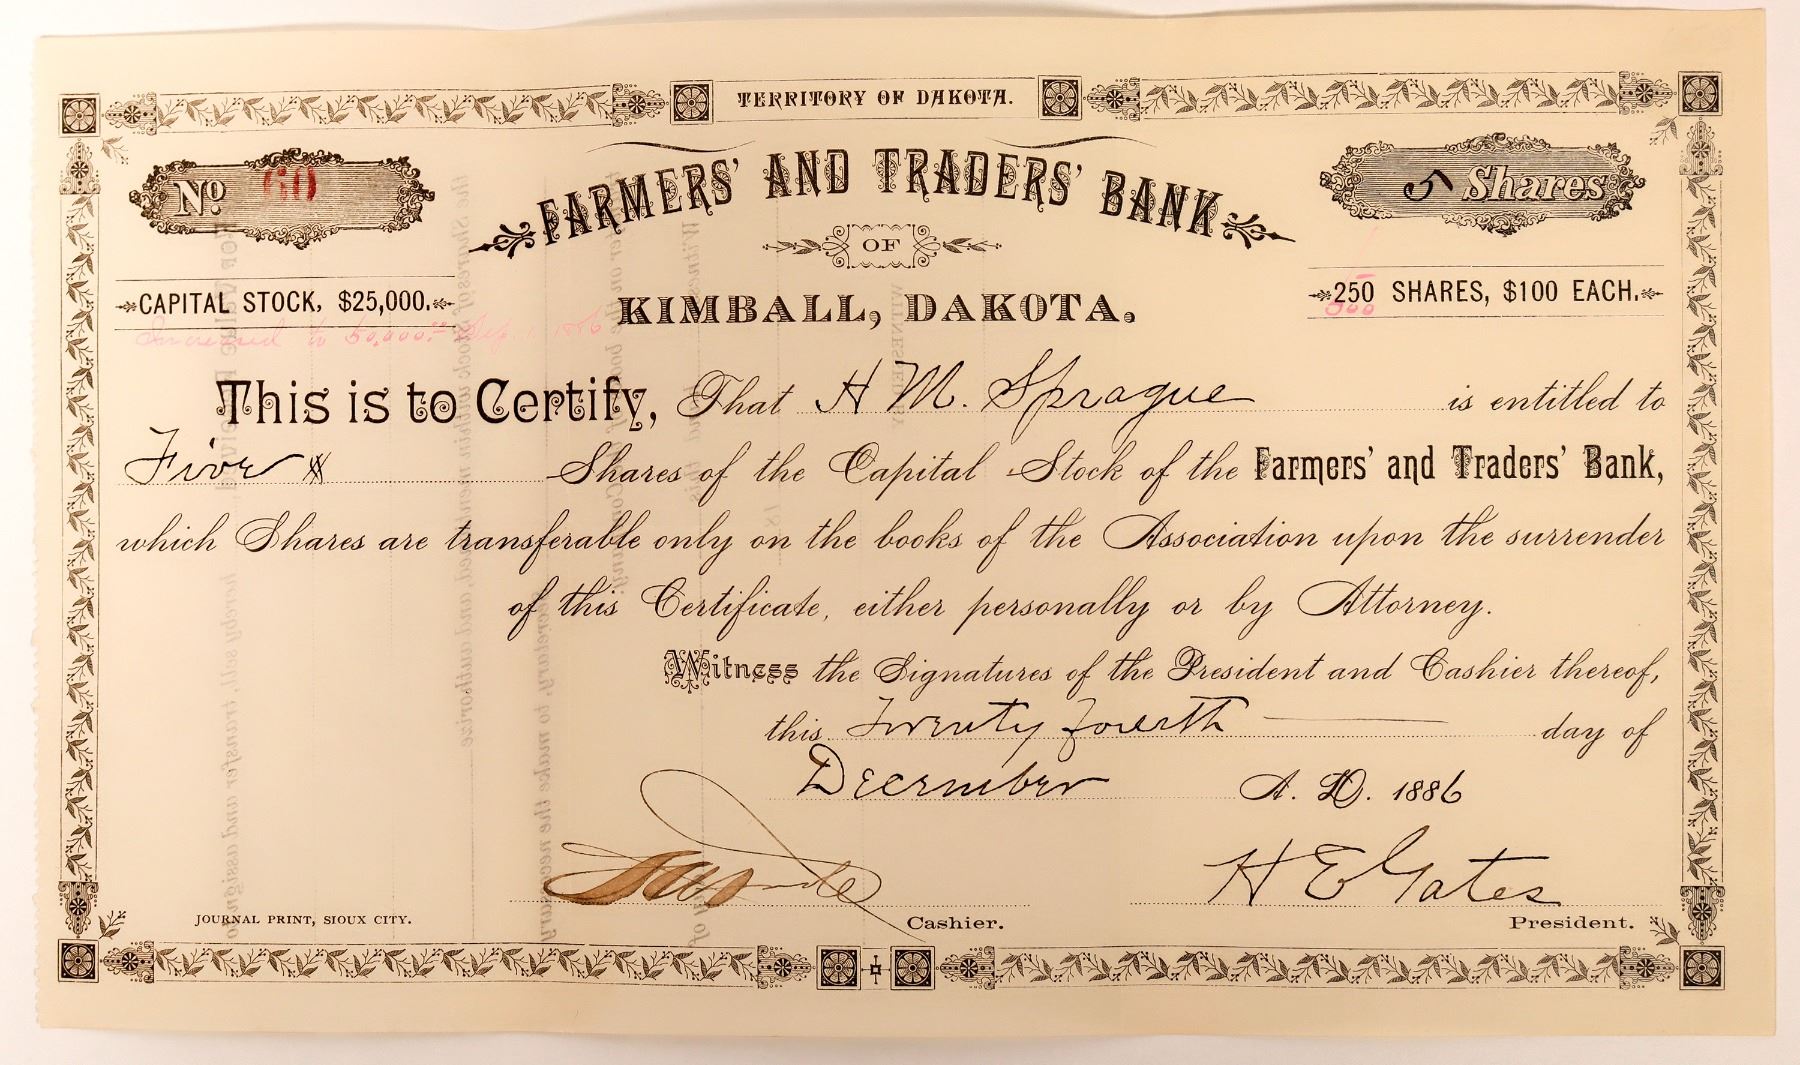 TERRITORY OF DAKOTA.
No 60
FARMERS' AND TRADERS' BANK
5 Shares
OF
CAPITAL STOCK, $25,000.
KIMBALL, DAKOTA.
250 SHARES, $100 EACH.
500
Increased to 50,000.00 Sep 1 1886
This is to Certify, That H M. Sprague is entitled to
Five Shares of the Capital Stock of the Farmers' and Traders' Bank,
which Shares are transferable only on the books of the Association upon the surrender
of this Certificate, either personally or by Attorney.
Witness the Signatures of the President and Cashier thereof,
this Twenty fourth day of
December A. D. 1886
H E Gates
JOURNAL PRINT, SIOUX CITY.
Cashier.
President.